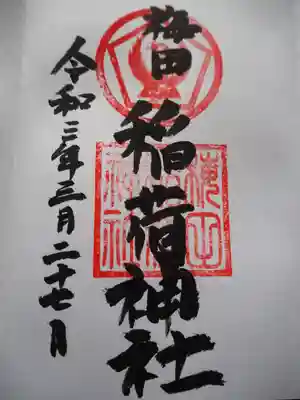 梅田稲荷神社
令和三年三月二十七日